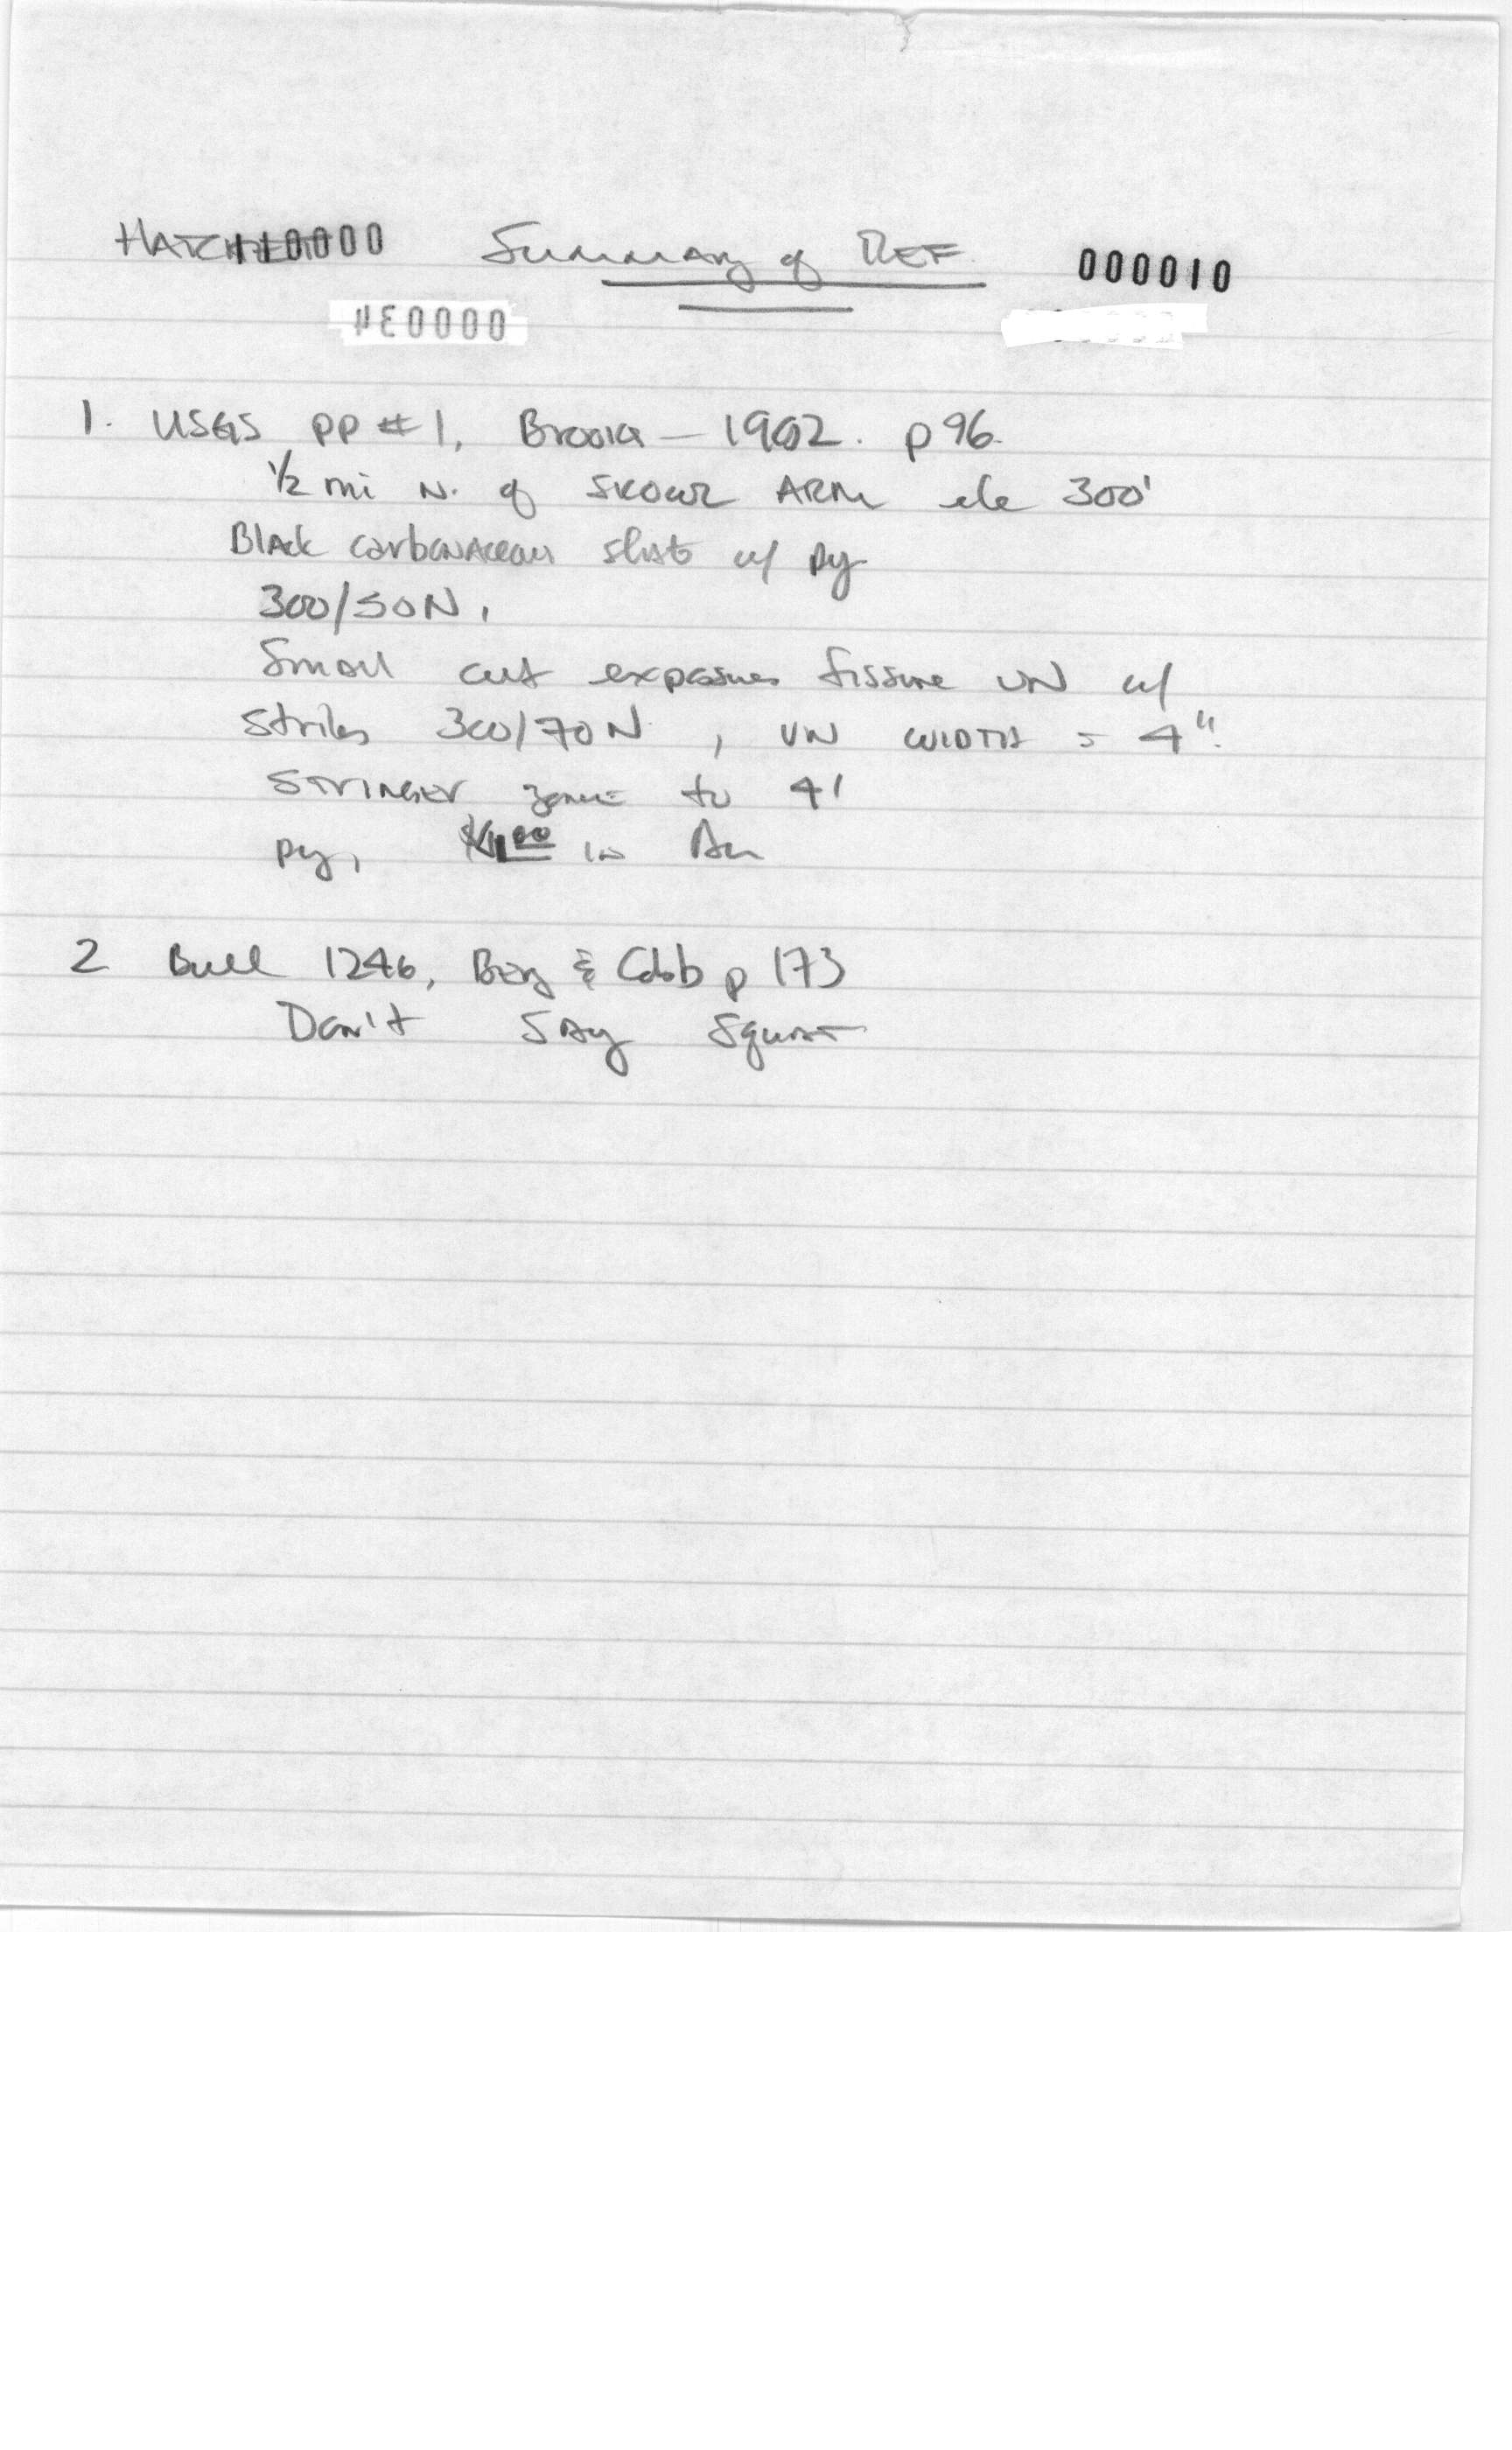 110000 Summary of REF. 000010
1. USGS PP #1, Brooks - 1902. p 96.
1/2 mi N. of SKOWL ARM ele 300'
Black carbonaceous slate w/ py
300/50N,
Small cut exposes fissure VN w/
strikes 300/70N, VN WIDTH = 4".
Stringer zone to 4'
py, in Au
2 Bull 1246, Berg & Cobb p 173
Don't Say Squat